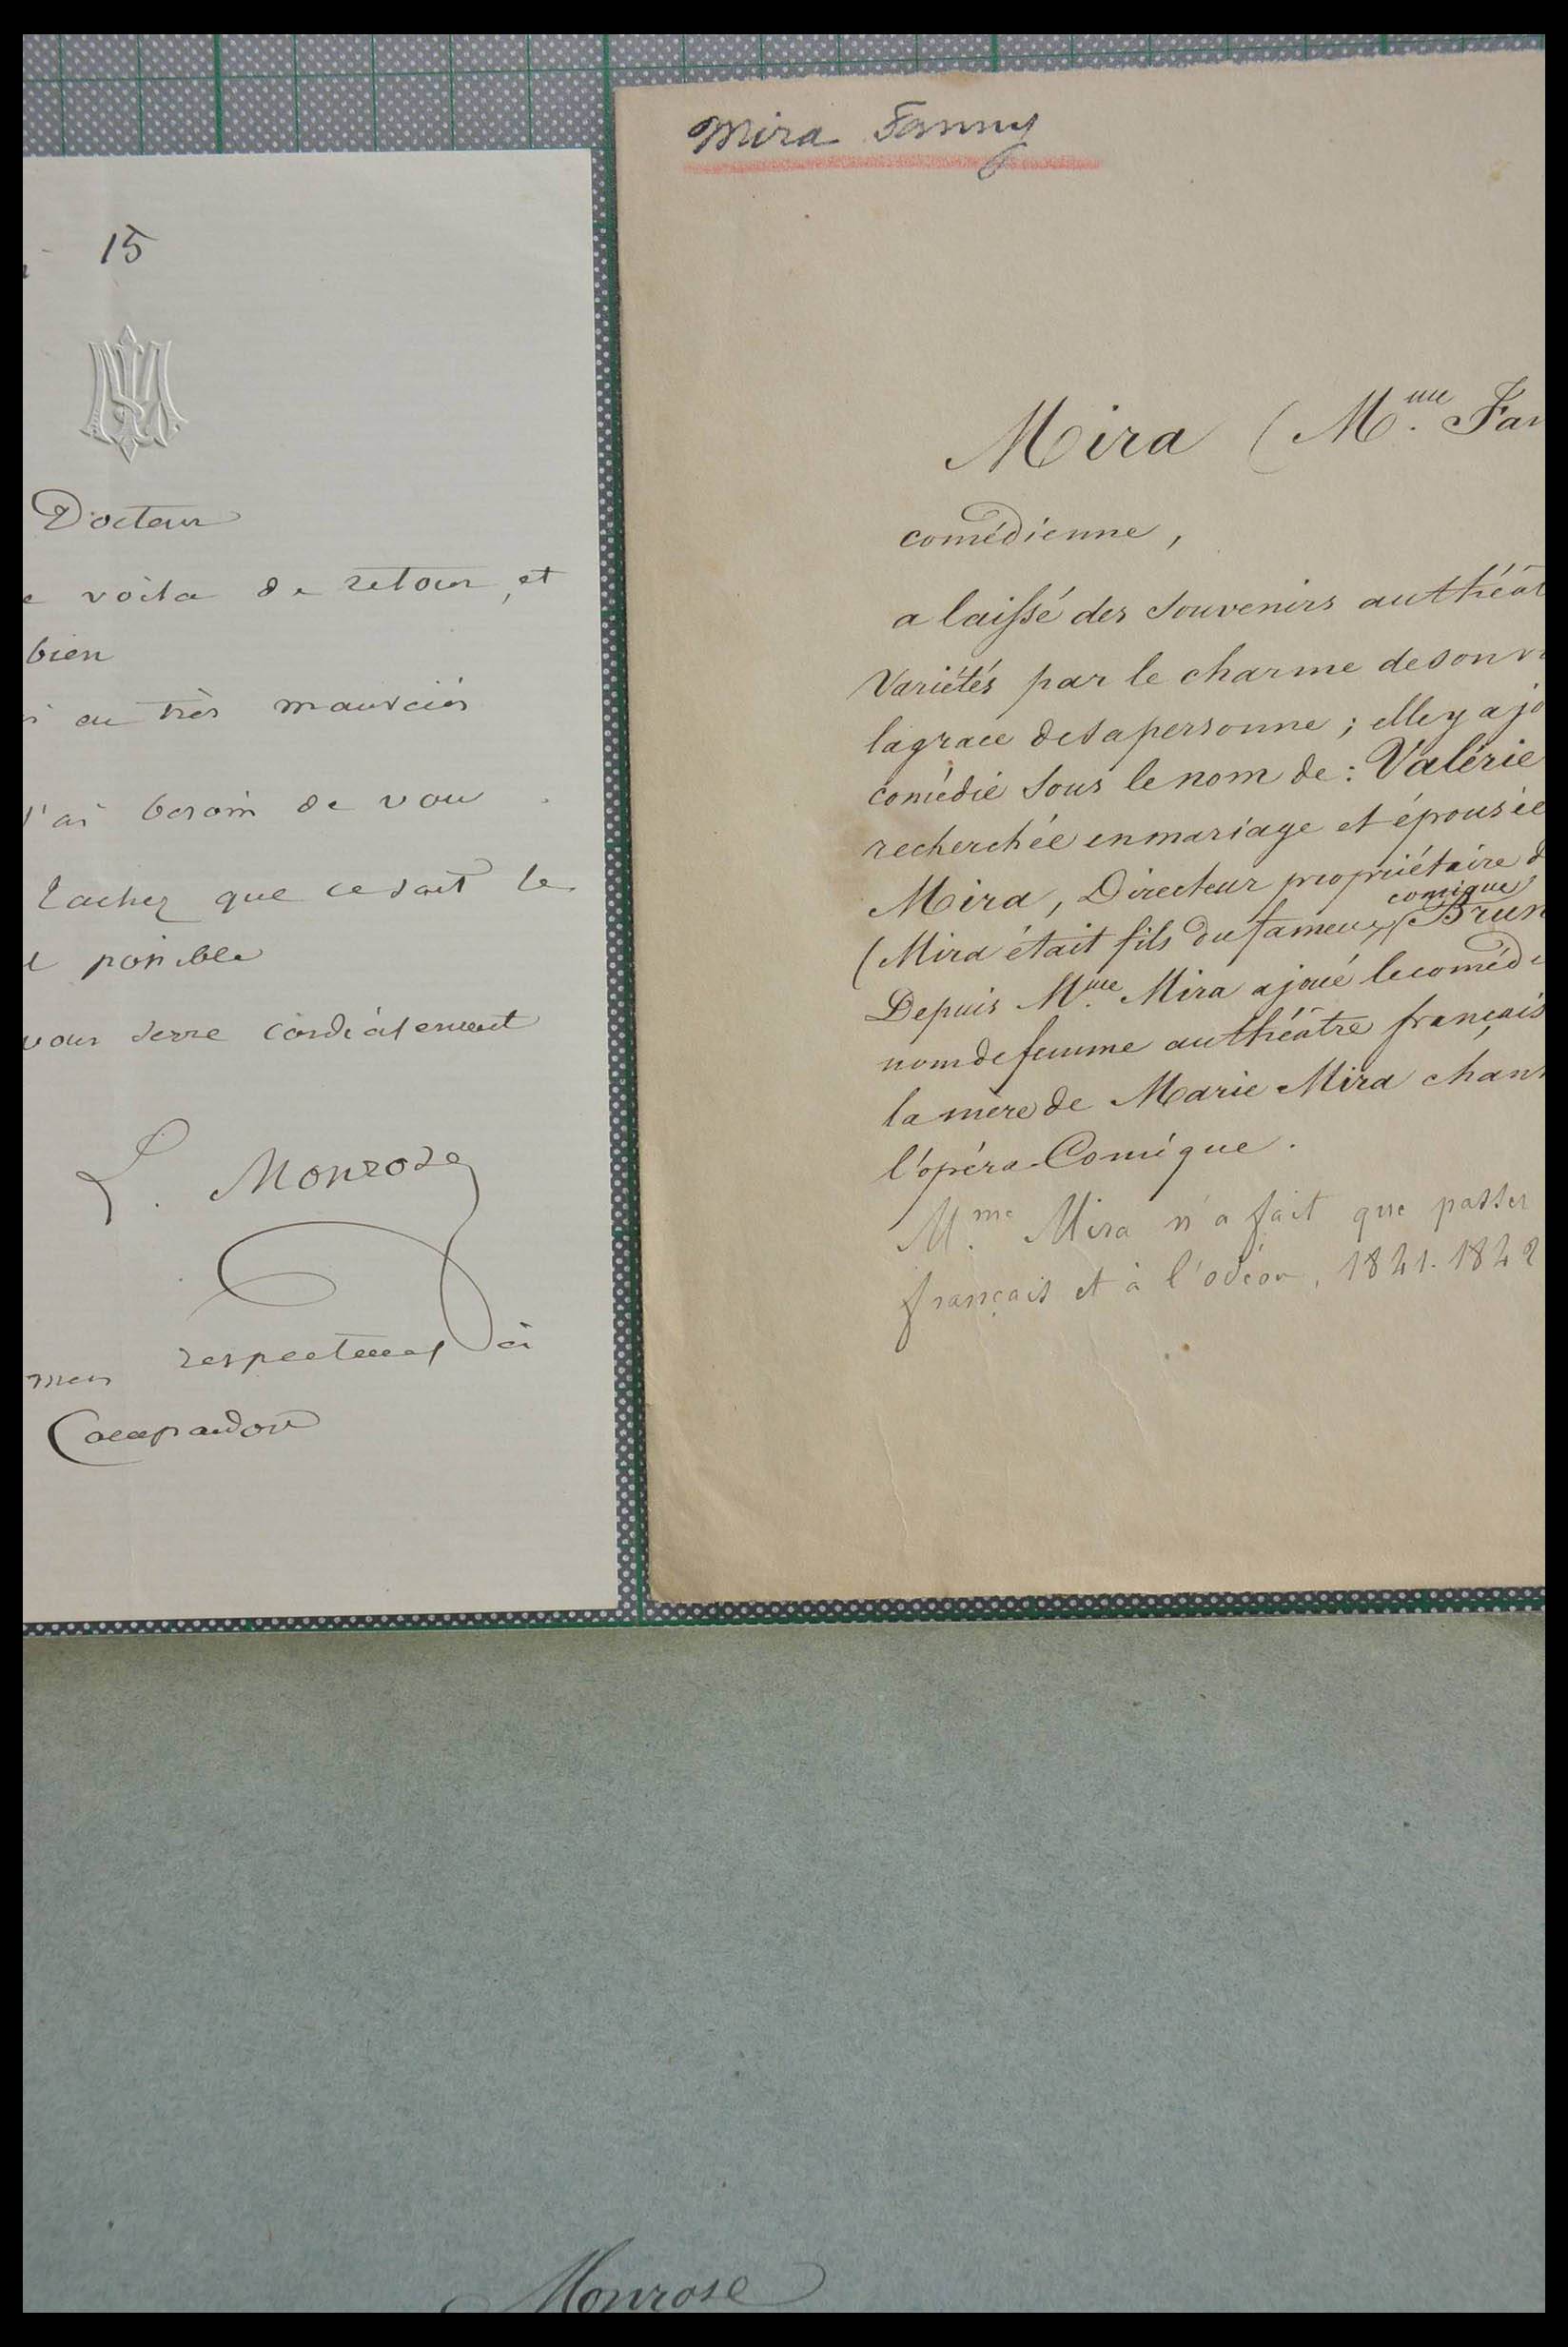 15
Docteur
voila de retour, et
bien
au très mauvais
J'ai besoin de vous.
Tachez que ce soit le
possible
vous serre cordialement
L. Monrose
mes respectueux à
Campardon
Mira Fanny
Mira (Mme. Fan
comédienne,
a laissé des souvenirs au théat
Variétés par le charme de son
la grace de sa personne ; elle y a jo
comédie sous le nom de : Valérie
recherchée en mariage et épousée
Mira, Directeur propriétaire d
comique
(Mira était fils du fameux Brun
Depuis Mme. Mira a joué le coméd
nom de femme au théâtre français
la mère de Marie Mira chan
l'opéra-Comique.
Mme. Mira n'a fait que passer
français et à l'odéon, 1841-1842
Monrose